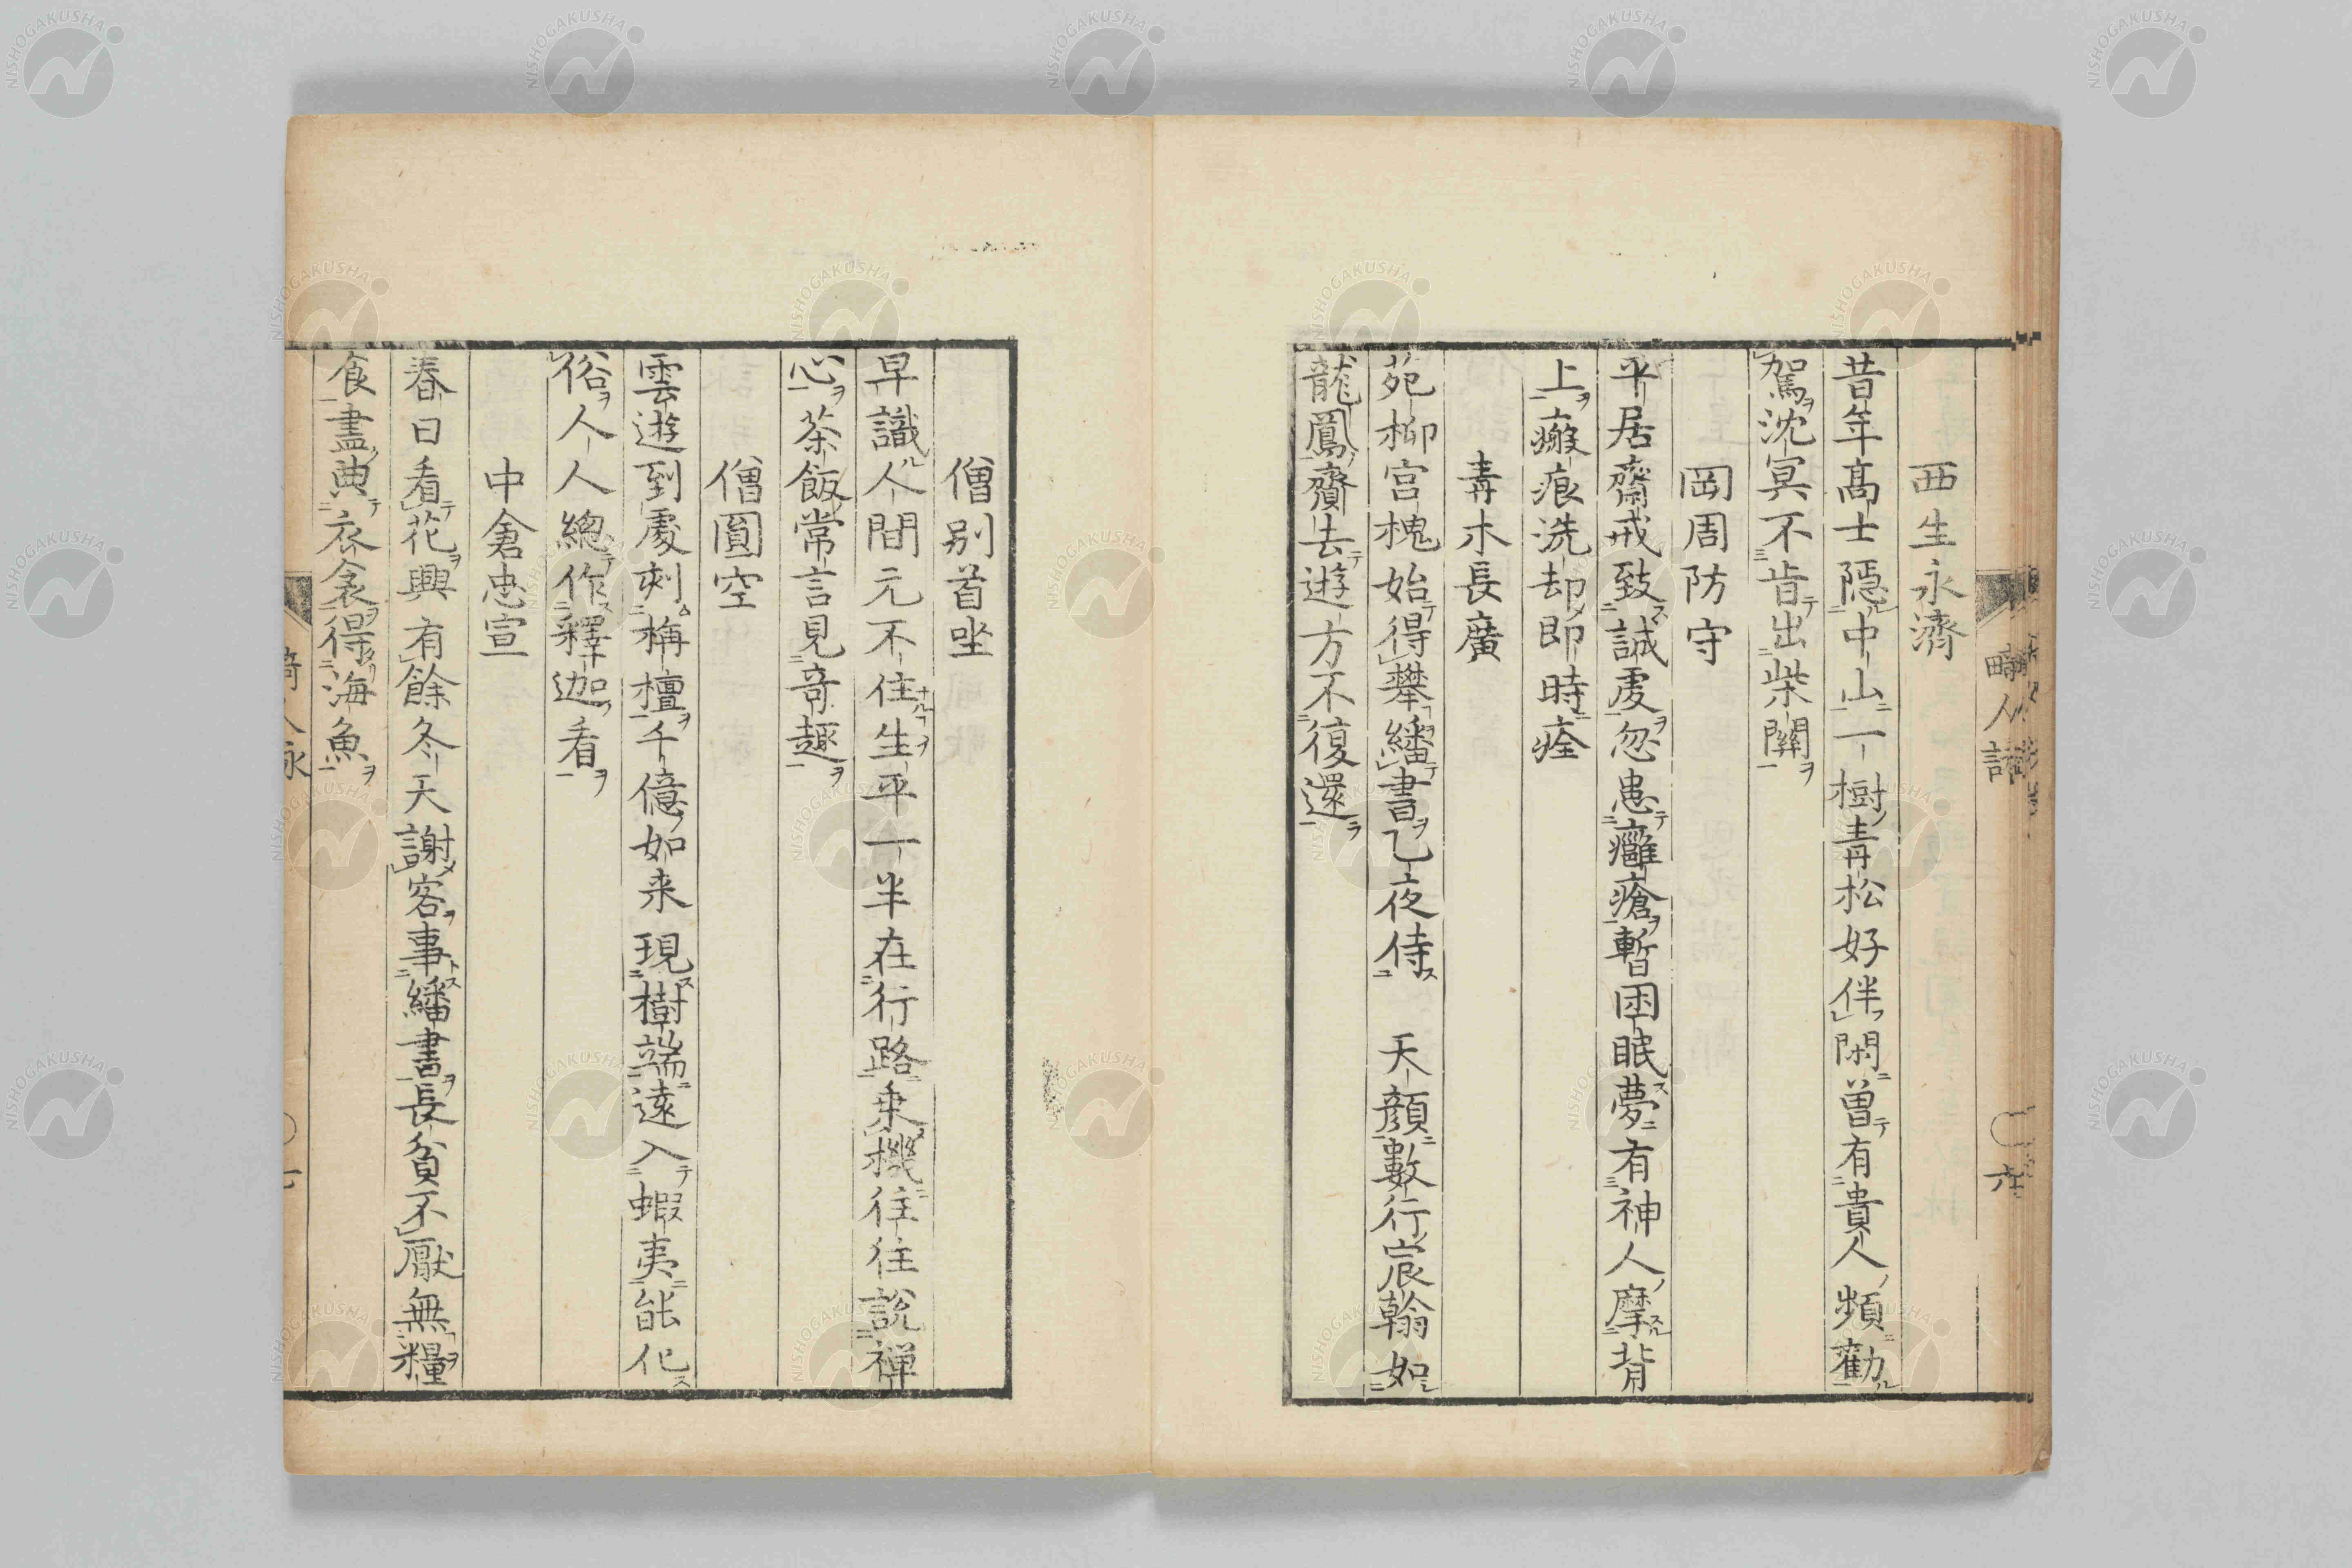 西生永濟
昔年高士隱中山一樹青松好伴閑曽有貴人頻勸
駕沈冥不肯出柴關
岡周防守
平居齋戒致誠虔忽患癰瘡暫困眠夢有神人摩背
上瘢痕洗却即時痊
青木長廣
苑柳宮槐始得攀繙書乙夜侍　天顔數行宸翰如
龍鳳齎去遊方不復還
畸人詠
六
僧別首坐
早識人間元不住生平一半在行路乗機往往説禅
心茶飯常言見奇趣
僧圓空
雲遊到處刺稱檀千億如来現樹端遠入蝦夷能化
俗人人總作釋迦看
中倉忠宣
春日看花興有餘冬天謝客事繙書長貧不厭無糧
食盡典衣衾得海魚
NISHOGAKUSHA